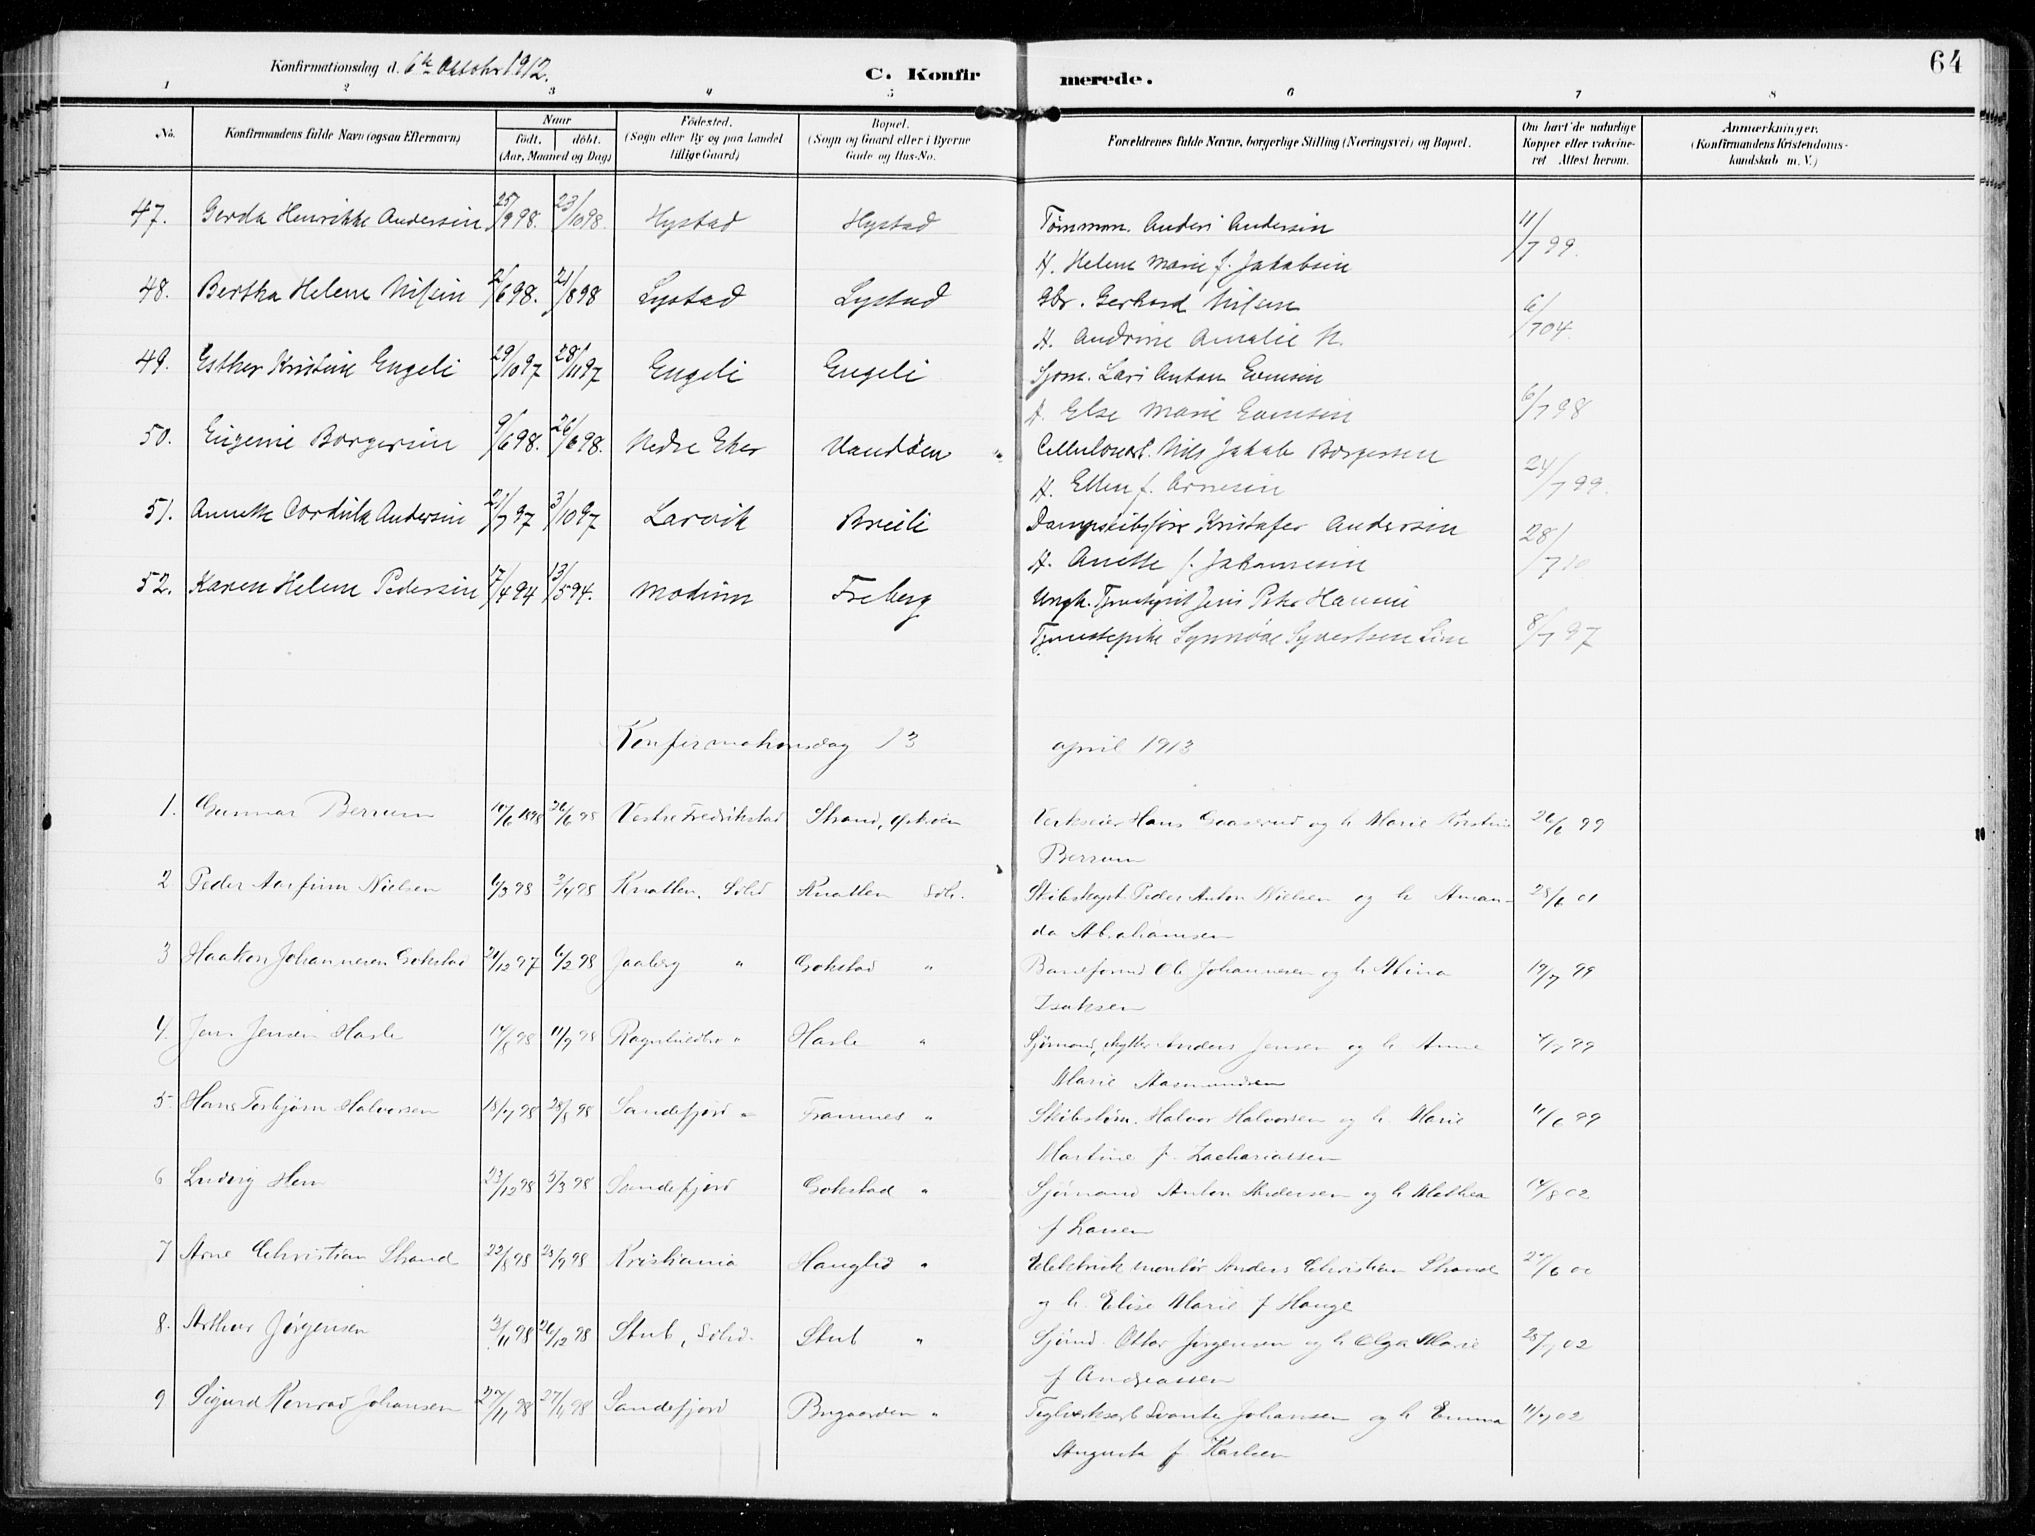 64
Konfirmationsdag d. 6te Oktober 1912.
C. Konfirmerede.
1 2 3 4 5 6 7 8
No.
Konfirmandens fulde Navn (ogsaa Efternavn)
Naar
födt. döbt.
(Aar, Maaned og Dag)
Födested.
(Sogn eller By og paa Landet
tillige Gaard)
Bopæl.
(Sogn og Gaard eller i Byerne
Gade og Hus-No.
Forældrenes fulde Navne, borgerlige Stilling (Næringsvei) og Bopæl.
Om havt de naturlige
Kopper eller vakcine-
ret Attest herom.
Anmærkninger.
(Konfirmandens Kristendoms-
kundskab m. V.)
47. Gerda Henrikke Andersen 25/9 98. 23/10 98. Hystad Hystad Tømman. Anders Andersen 11/7 99.
H. Helene Marie f. Jakobsen
48. Bertha Helene Nilsen 2/6 98. 21/8 98 Lystad Lystad Gbr. Gerhard Nilsen 6/7 04.
H. Andrine Amalie N.
49. Esther Kristine Engeli 29/10 97 28/11 97 Engeli Engeli Sjøm. Lars Anton Evensen 6/7 98
H. Else Marie Evensen
50. Eugenie Borgersen 9/6 98. 26/6 98. Nedre Eker Cellulosearb. Nils Jakob Borgersen 24/7 99.
H. Ellen f. Arnesen
51. Annette Cordula Andersen 21/7 97 3/10 97 Larvik Breili Kristofer Andersen 28/7 10
H. Anette f. Johannesen
52. Karen Helene Pedersen 17/4 94 13/5 94. Modum Freberg Ungk. Jens
Tjenestepike Synnøve Syvertsen 8/7 97
Konfirmationsdag 13 april 1913
1. Gunnar Berrum 10/6 1898 26/6 98 Vestre Fredrikstad Strand, Verkseier Hans Gaaserud og h. Marie Kristine 26/6 99
Berrum
2 Peder Aarfinn Nielsen 6/3 98 3/4 98 Knatten, Knatten Skibskapt. Peder Anton Nielsen og h. Aman- 28/6 01
da Abrahamsen
3 Haakon Johannesen Gokstad 24/12 97 6/2 98 Jaaberg " Gokstad " Baneformd Ole Johannesen og h. Mina 19/7 99
Isaksen
4. Jens Jensen Hasle 14/8 98 11/9 98 " Hasle " Sjømand, Anders Jensen og h. Anne
Marie Aasmundsen
5. Hans Torbjørn Halvorsen 18/7 98 28/8 98 Sandefjord " Framnes " Skibstøm. Halvor Halvorsen og h. Marie 11/6 99
Martine f. Zachariassen
6 Ludvig Hem 23/12 98 5/3 98 Sandefjord Gokstad " Sjømand Anton Andersen og h. Mathea 14/8 02
f Larsen
7 Arne Christian Strand 22/8 98 Kristiania " Elektrisk montør Anders Christian Strand
og h. Elise Marie f Hauge
8. Arthur Jørgensen 3/11 98 26/12 98 Stub, Stub " Sjømd. Ottar Jørgensen og h Olga Marie
f Andreassen
9 Sigurd Konrad Johansen Sandefjord Bugaarden " Teglverksarb. Svante Johansen og h Emma
Augusta f Karlsen